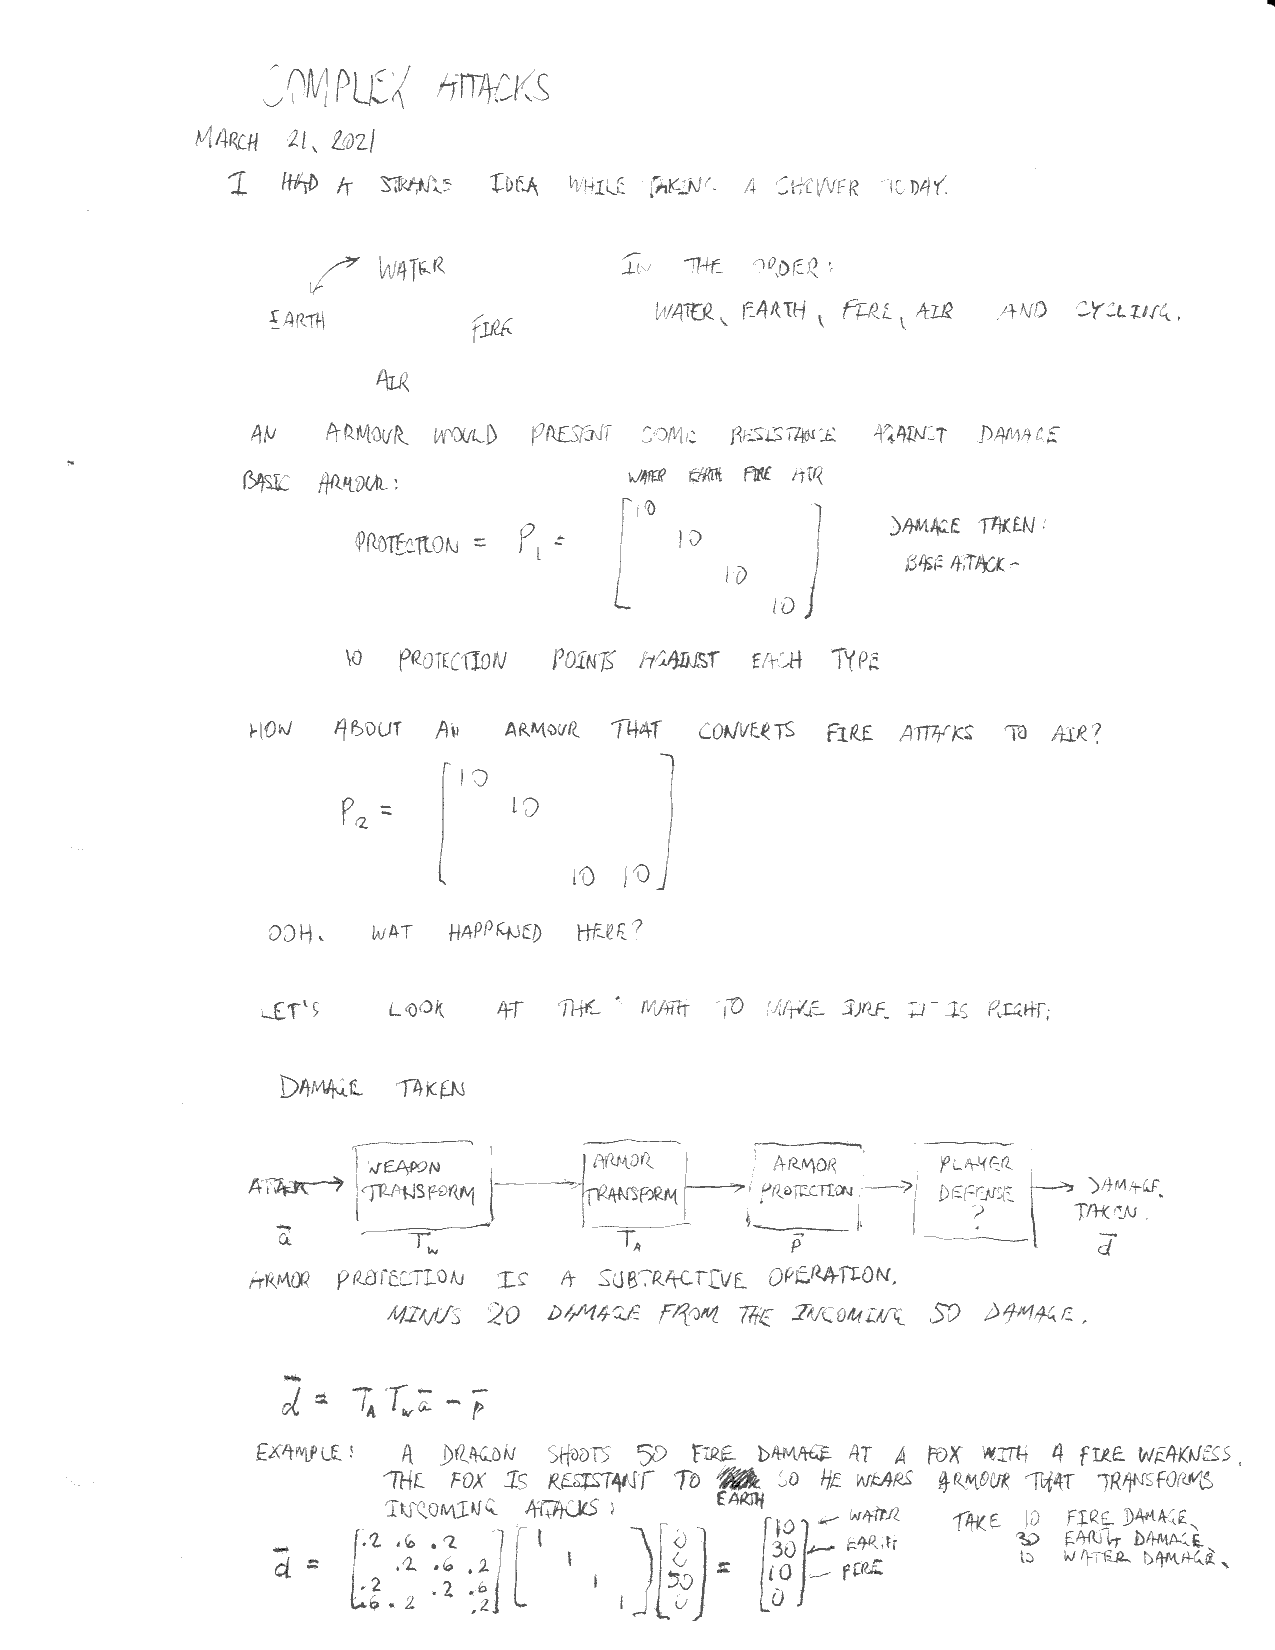 COMPLEX ATTACKS
MARCH 21, 2021
I HAD A STRANGE IDEA WHILE TAKING A SHOWER TODAY.
WATER
EARTH
FIRE
AIR
IN THE ORDER:
WATER, EARTH, FIRE, AIR AND CYCLING.
AN ARMOUR WOULD PRESENT SOME RESISTANCE AGAINST DAMAGE
BASIC ARMOUR:
WATER EARTH FIRE AIR
PROTECTION = P1 =
10
10
10
10
DAMAGE TAKEN:
BASE ATTACK -
10 PROTECTION POINTS AGAINST EACH TYPE
HOW ABOUT AN ARMOUR THAT CONVERTS FIRE ATTACKS TO AIR?
P2 =
10
10
10 10
OOH. WAT HAPPENED HERE?
LET'S LOOK AT THE MATH TO MAKE SURE IT IS RIGHT.
DAMAGE TAKEN
ATTACK
a
WEAPON TRANSFORM
Tw
ARMOR TRANSFORM
TA
ARMOR PROTECTION
p
PLAYER DEFENSE ?
DAMAGE TAKEN.
d
ARMOR PROTECTION IS A SUBTRACTIVE OPERATION.
MINUS 20 DAMAGE FROM THE INCOMING 50 DAMAGE.
d = TA Tw a - p
EXAMPLE: A DRAGON SHOOTS 50 FIRE DAMAGE AT A FOX WITH A FIRE WEAKNESS.
THE FOX IS RESISTANT TO EARTH SO HE WEARS ARMOUR THAT TRANSFORMS
INCOMING ATTACKS:
d =
.2 .6 .2
.2 .6 .2
.2 .2 .6
.6 .2 .2
1
1
1
1
0
0
50
0
=
10 WATER
30 EARTH
10 FIRE
0
TAKE 10 FIRE DAMAGE,
30 EARTH DAMAGE
10 WATER DAMAGE.